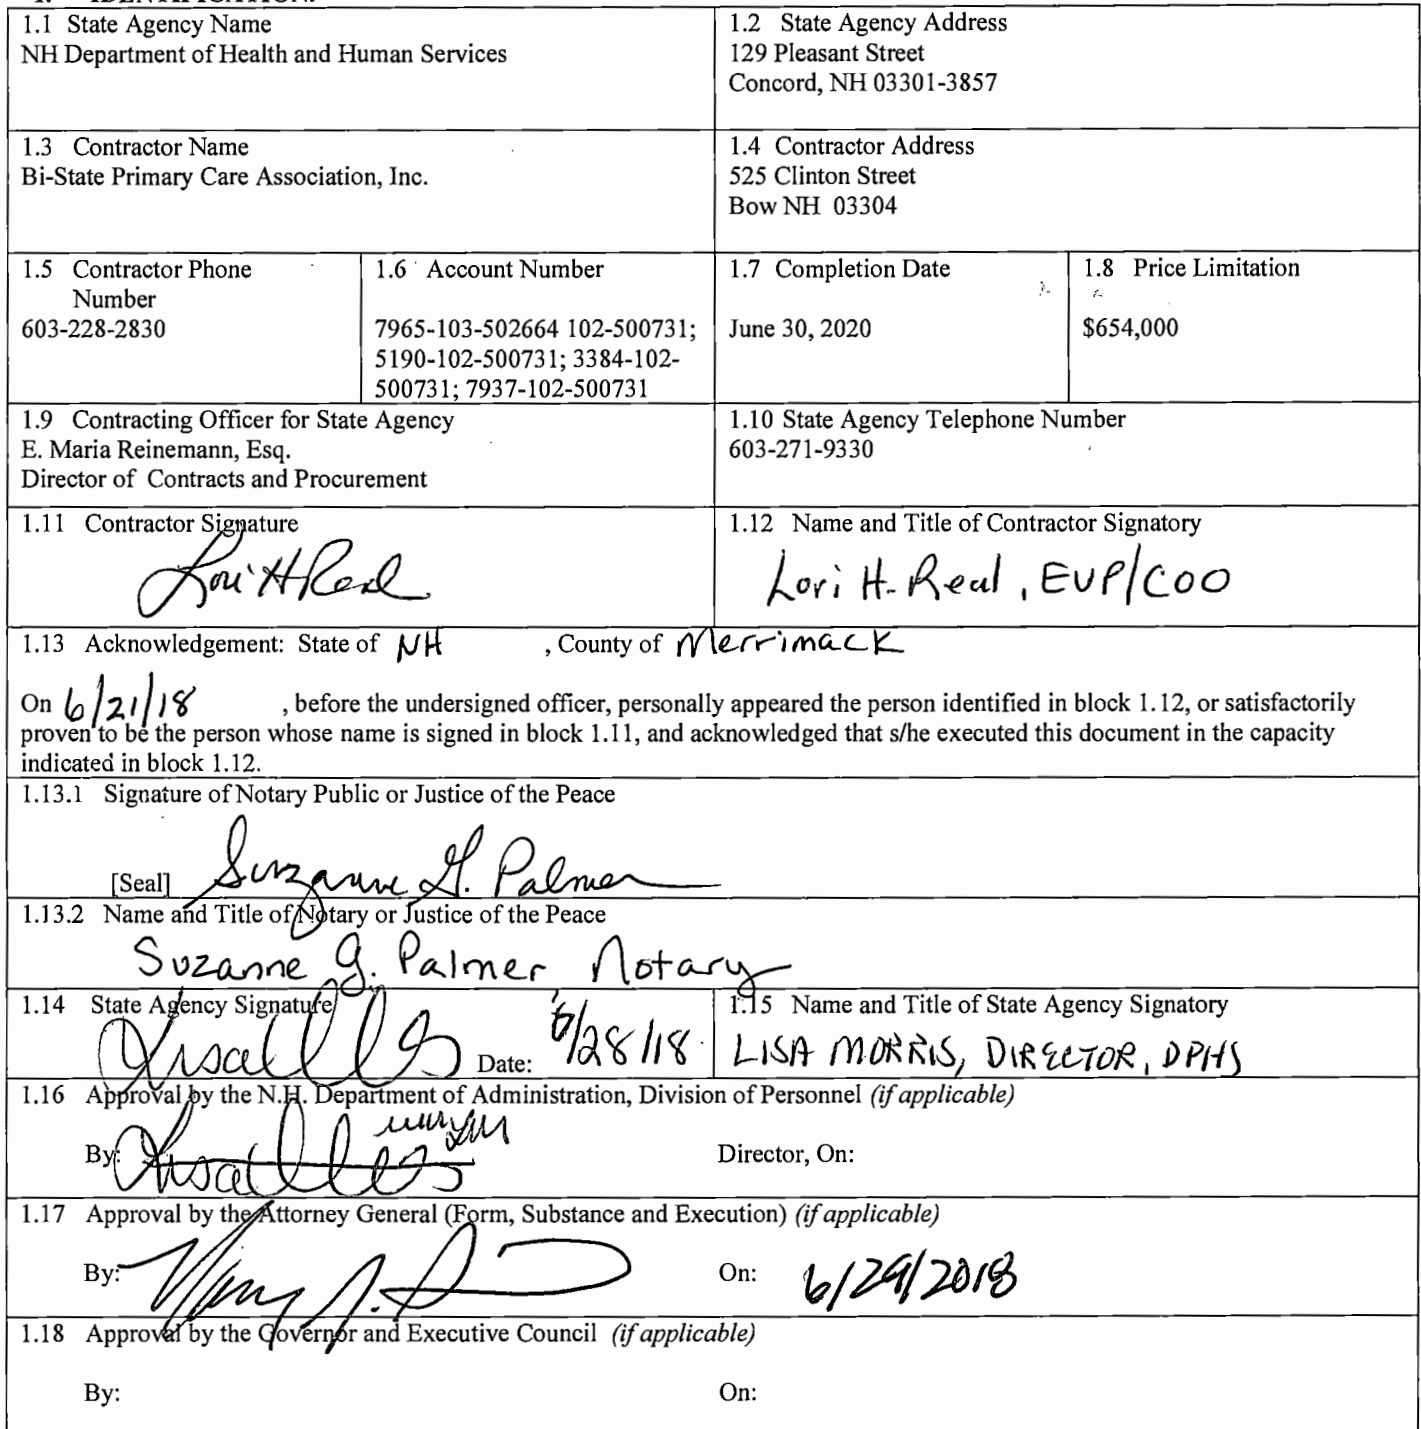 1.1 State Agency Name
NH Department of Health and Human Services
1.2 State Agency Address
129 Pleasant Street
Concord, NH 03301-3857
1.3 Contractor Name
Bi-State Primary Care Association, Inc.
1.4 Contractor Address
525 Clinton Street
Bow NH 03304
1.5 Contractor Phone
Number
603-228-2830
1.6 Account Number
7965-103-502664 102-500731;
5190-102-500731; 3384-102-
500731; 7937-102-500731
1.7 Completion Date
June 30, 2020
1.8 Price Limitation
$654,000
1.9 Contracting Officer for State Agency
E. Maria Reinemann, Esq.
Director of Contracts and Procurement
1.10 State Agency Telephone Number
603-271-9330
1.11 Contractor Signature
Lori H Real
1.12 Name and Title of Contractor Signatory
Lori H. Real, EVP/COO
1.13 Acknowledgement: State of NH , County of Merrimack
On 6/21/18 , before the undersigned officer, personally appeared the person identified in block 1.12, or satisfactorily
proven to be the person whose name is signed in block 1.11, and acknowledged that s/he executed this document in the capacity
indicated in block 1.12.
1.13.1 Signature of Notary Public or Justice of the Peace
[Seal] Suzanne G. Palmer
1.13.2 Name and Title of Notary or Justice of the Peace
Suzanne G. Palmer Notary
1.14 State Agency Signature
Date: 6/28/18
1.15 Name and Title of State Agency Signatory
LISA MORRIS, DIRECTOR, DPHS
1.16 Approval by the N.H. Department of Administration, Division of Personnel (if applicable)
By: Director, On:
1.17 Approval by the Attorney General (Form, Substance and Execution) (if applicable)
By: On: 6/29/2018
1.18 Approval by the Governor and Executive Council (if applicable)
By: On: